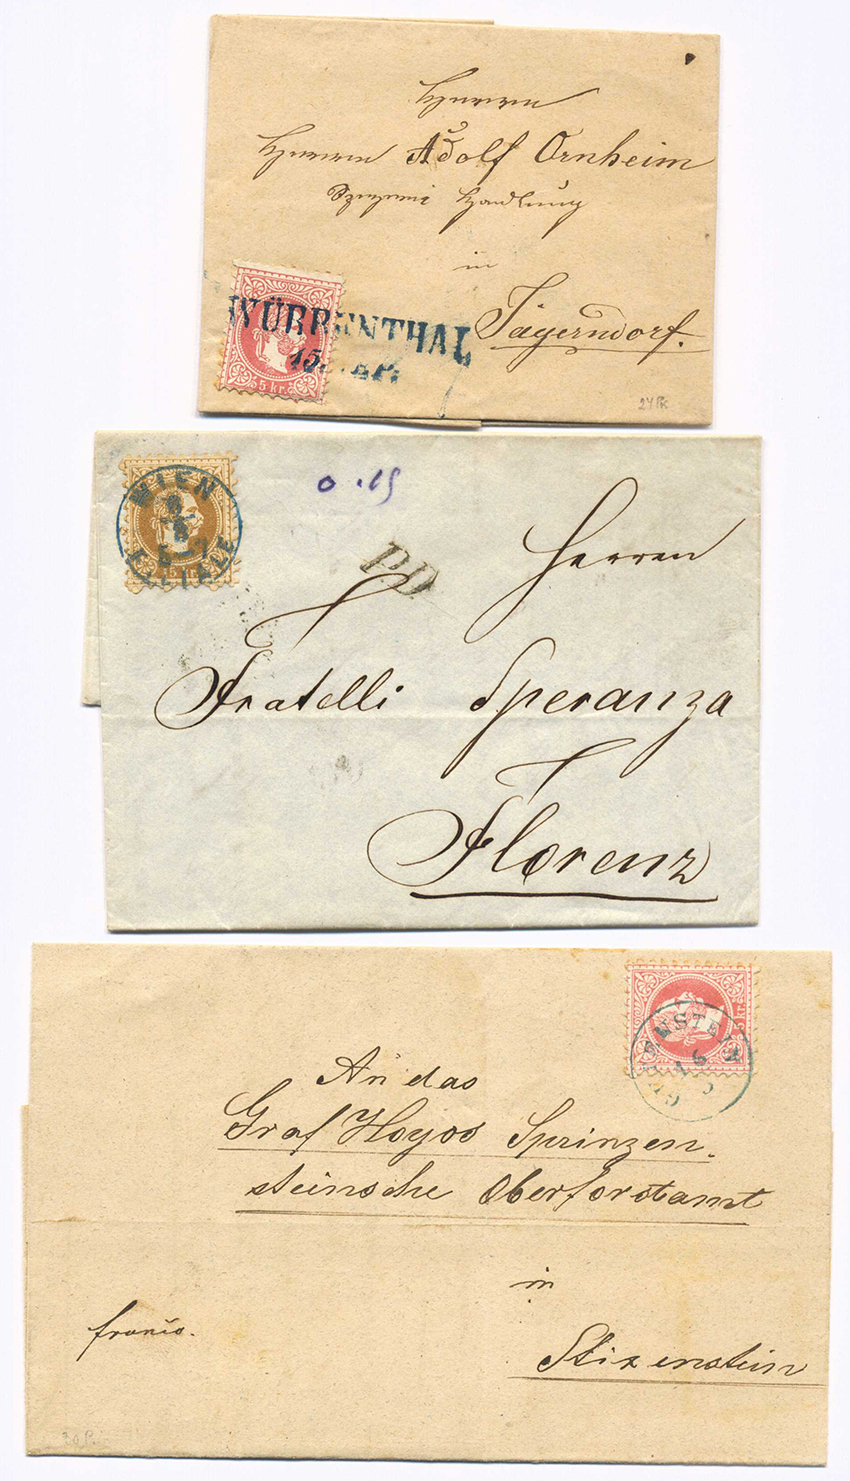 Herrn
Herrn Adolf Ornheim
Spezerei Handlung
in
Jägerndorf.
WÜRBENTHAL
15. APR.
5 kr.
24 Pk
WIEN
FILIALE
15 kr.
0.15
P.D.
Herren
Fratelli Speranza
Florenz
5 kr.
16
An das
Graf Hoyos Sprinzen-
steinsche Oberforstamt
in
franco.
Stixenstein